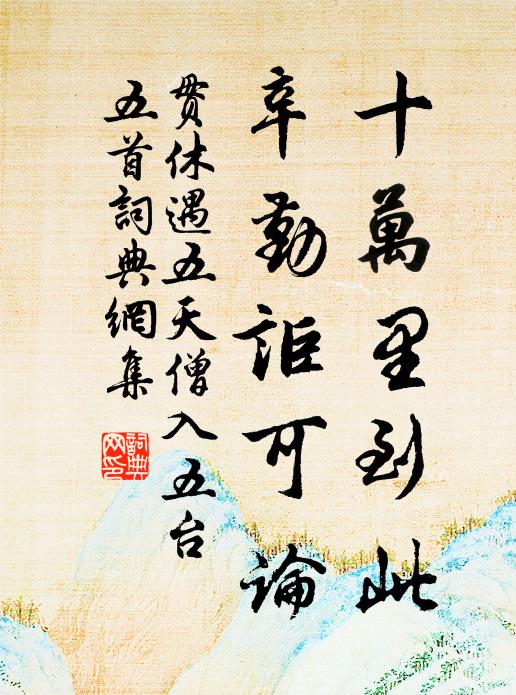 十萬里到此
辛勤詎可論
貫休遇五天僧入五台
五首詞典網集
詞典
网印